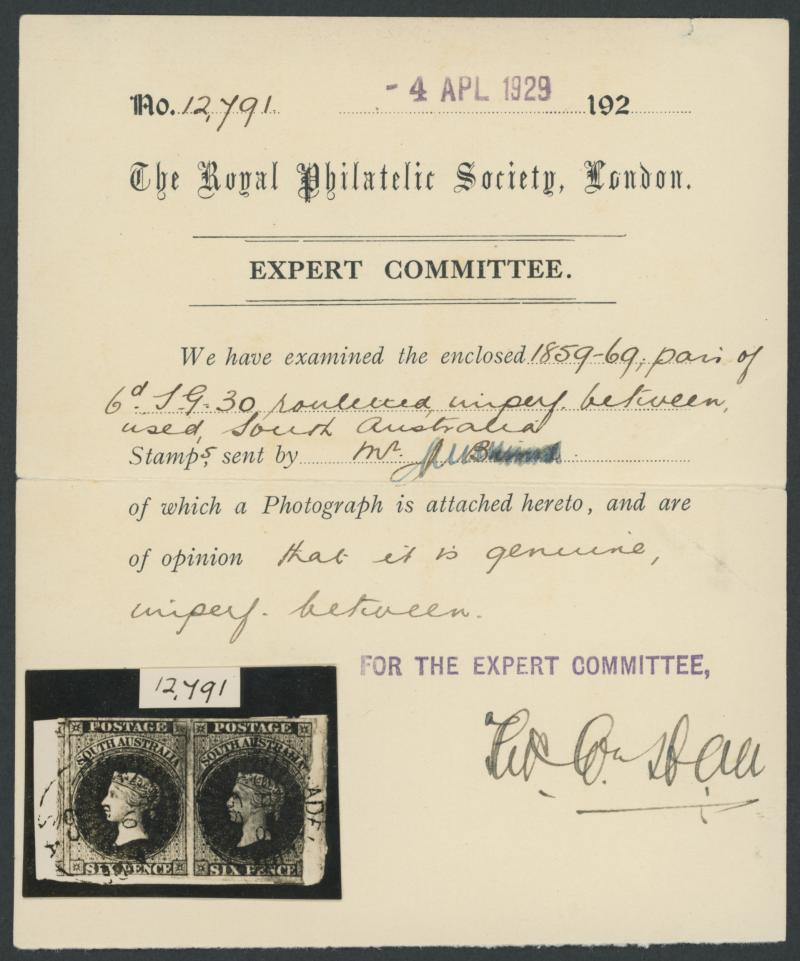 No. 12,791 - 4 APL 1929 192
The Royal Philatelic Society, London.
EXPERT COMMITTEE.
We have examined the enclosed 1859-69, pair of
6d S.G. 30, rouletted, imperf. between,
used, South Australia
Stamps, sent by Mr.
of which a Photograph is attached hereto, and are
of opinion that it is genuine,
imperf. between.
FOR THE EXPERT COMMITTEE,
12,791
POSTAGE POSTAGE
SOUTH AUSTRALIA SOUTH AUSTRALIA
SIX PENCE SIX PENCE